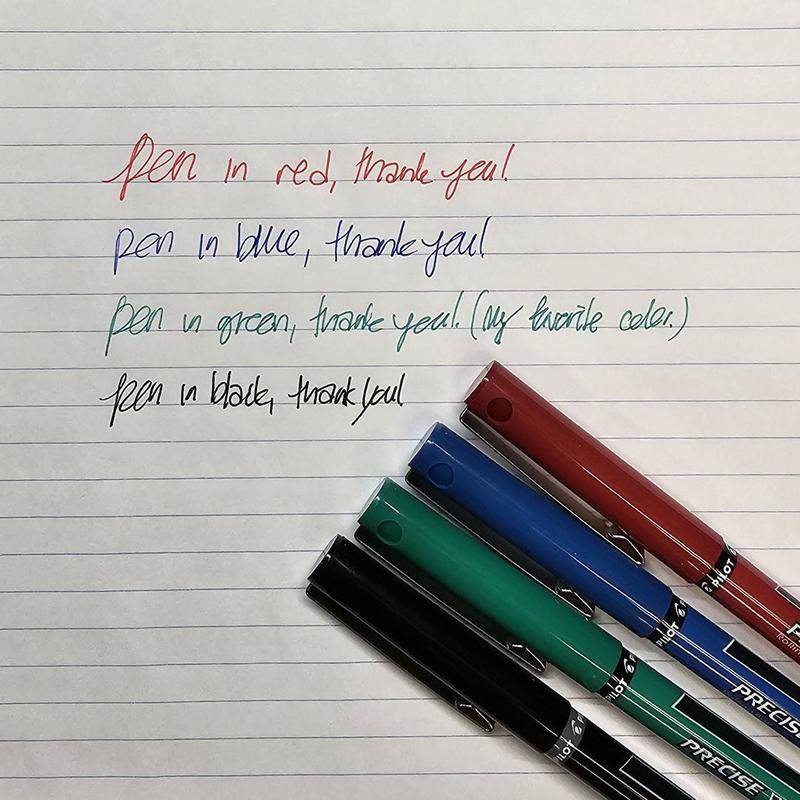 Pen in red, thank you!
pen in blue, thank you!
pen in green, thank you!. (My favorite color.)
pen in black, thank you!
PILOT
PILOT
PRECISE
PILOT
PRECISE V
PILOT